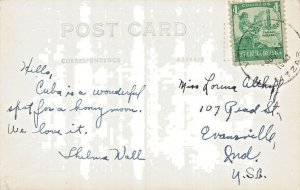 POST CARD
CORRESPONDENCE
ADDRESS
CORREOS
Hello,
Cuba is a wonderful
spot for a honeymoon.
We love it.
Thelma Wall
Miss Lorena
107 Read St.
Evansville,
Ind.
U.S.A.